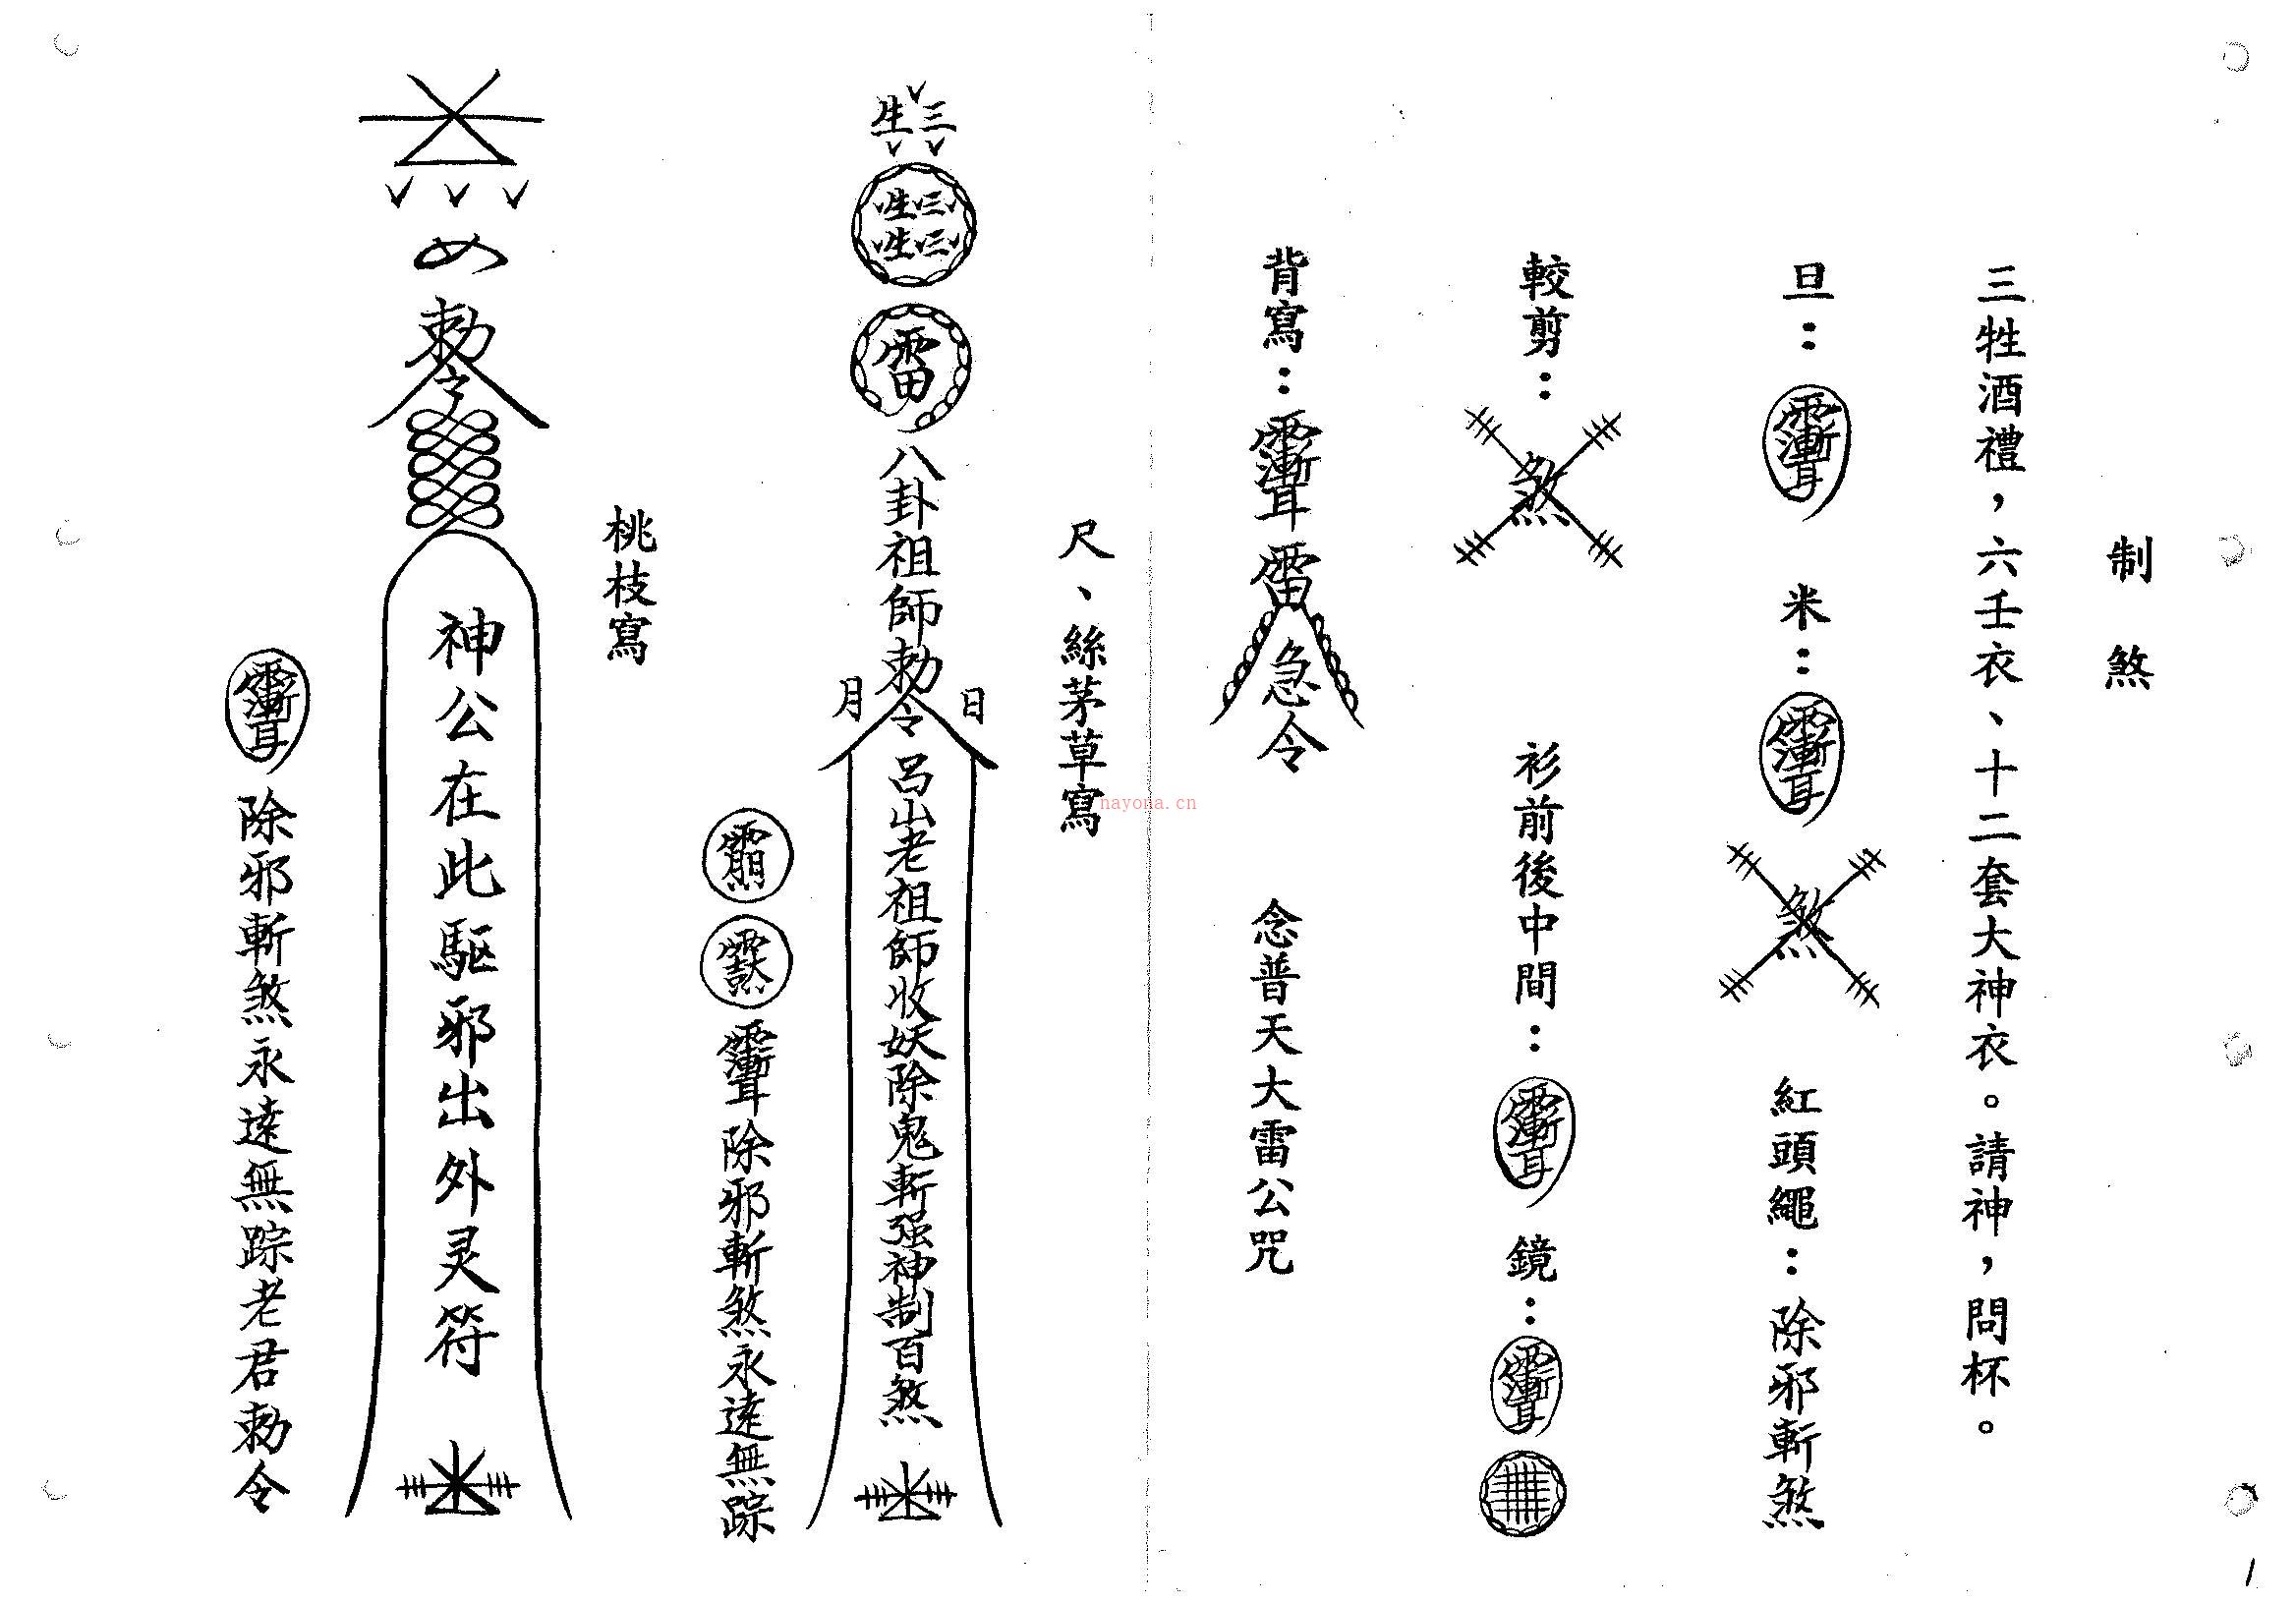 制煞
三牲酒禮，六壬衣、十二套大神衣。請神，問杯。
旦： 米： 煞 紅頭繩：除邪斬煞
較剪： 煞 衫前後中間： 鏡：
背寫： 雷 急令 念普天大雷公咒
尺、絲茅草寫
三生
三三生生
雷
八卦祖師勅令
日月
呂山老祖師收妖除鬼斬强神制百煞
除邪斬煞永遠無踪
桃枝寫
勅令
神公在此駆邪出外灵符
除邪斬煞永遠無踪老君勅令
nayona.cn
1